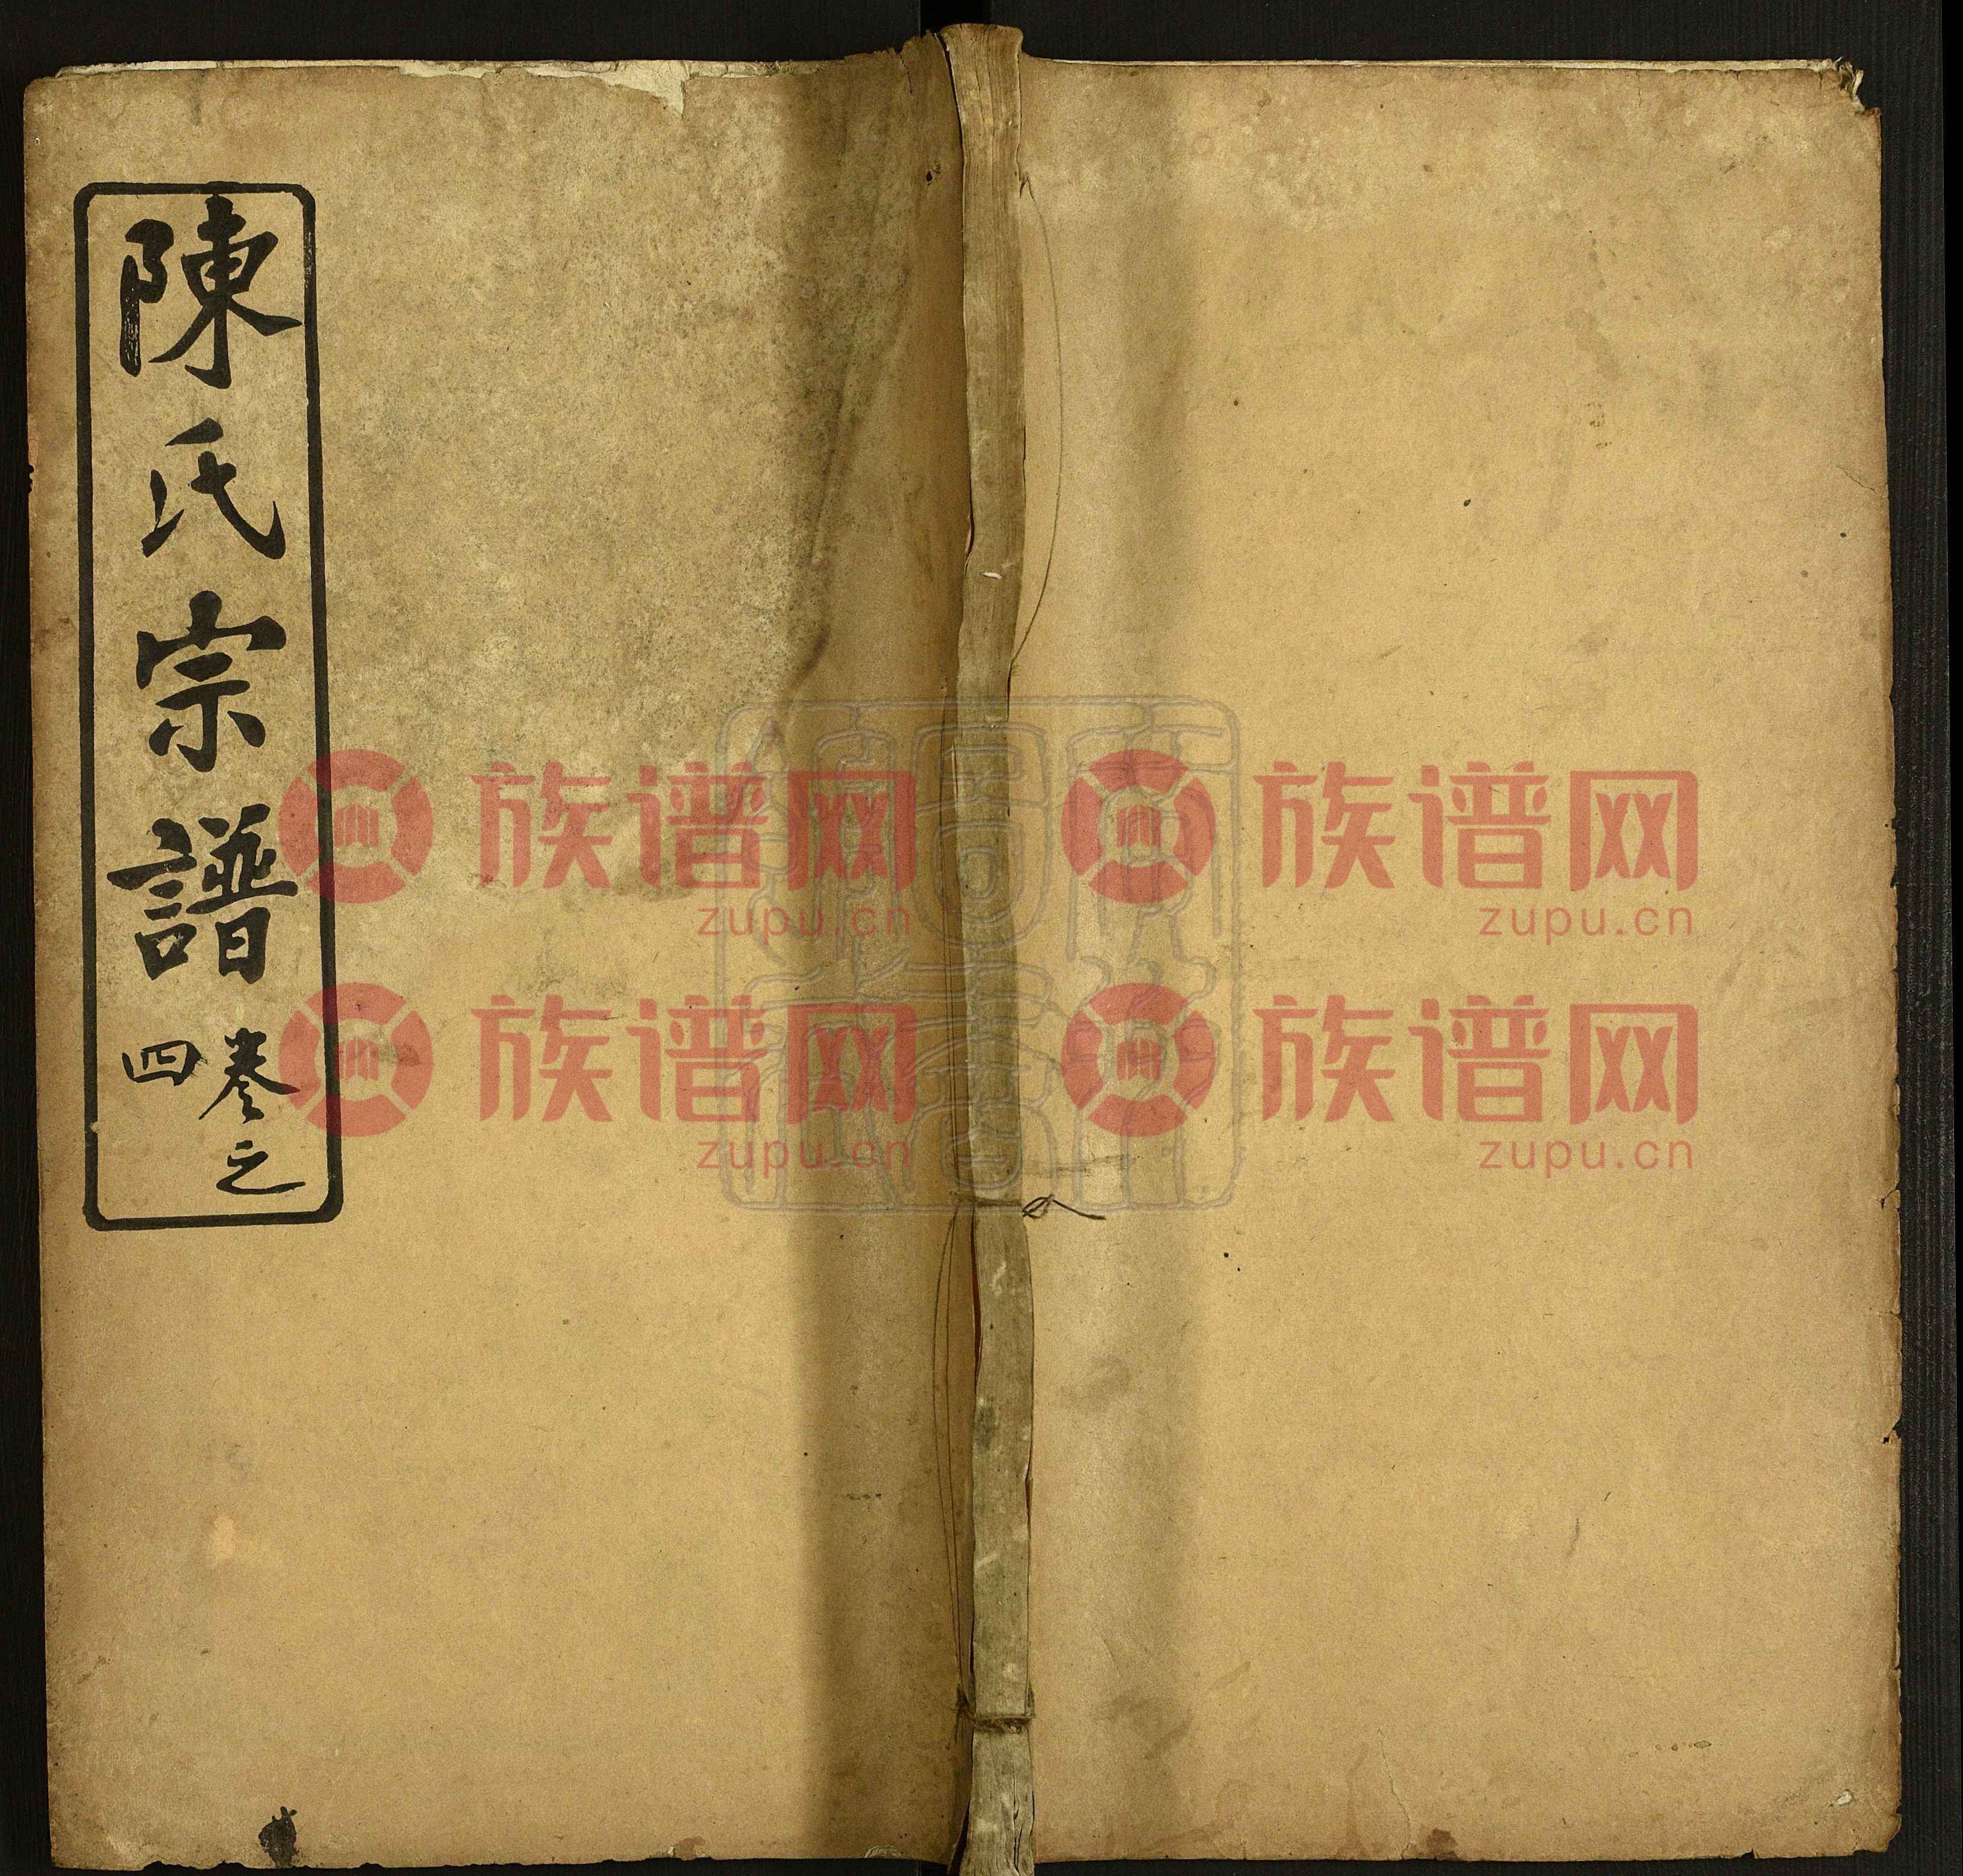 陳氏宗譜
卷之
四
族谱网 族谱网
zupu.cn zupu.cn
族谱网 族谱网
zupu.cn zupu.cn